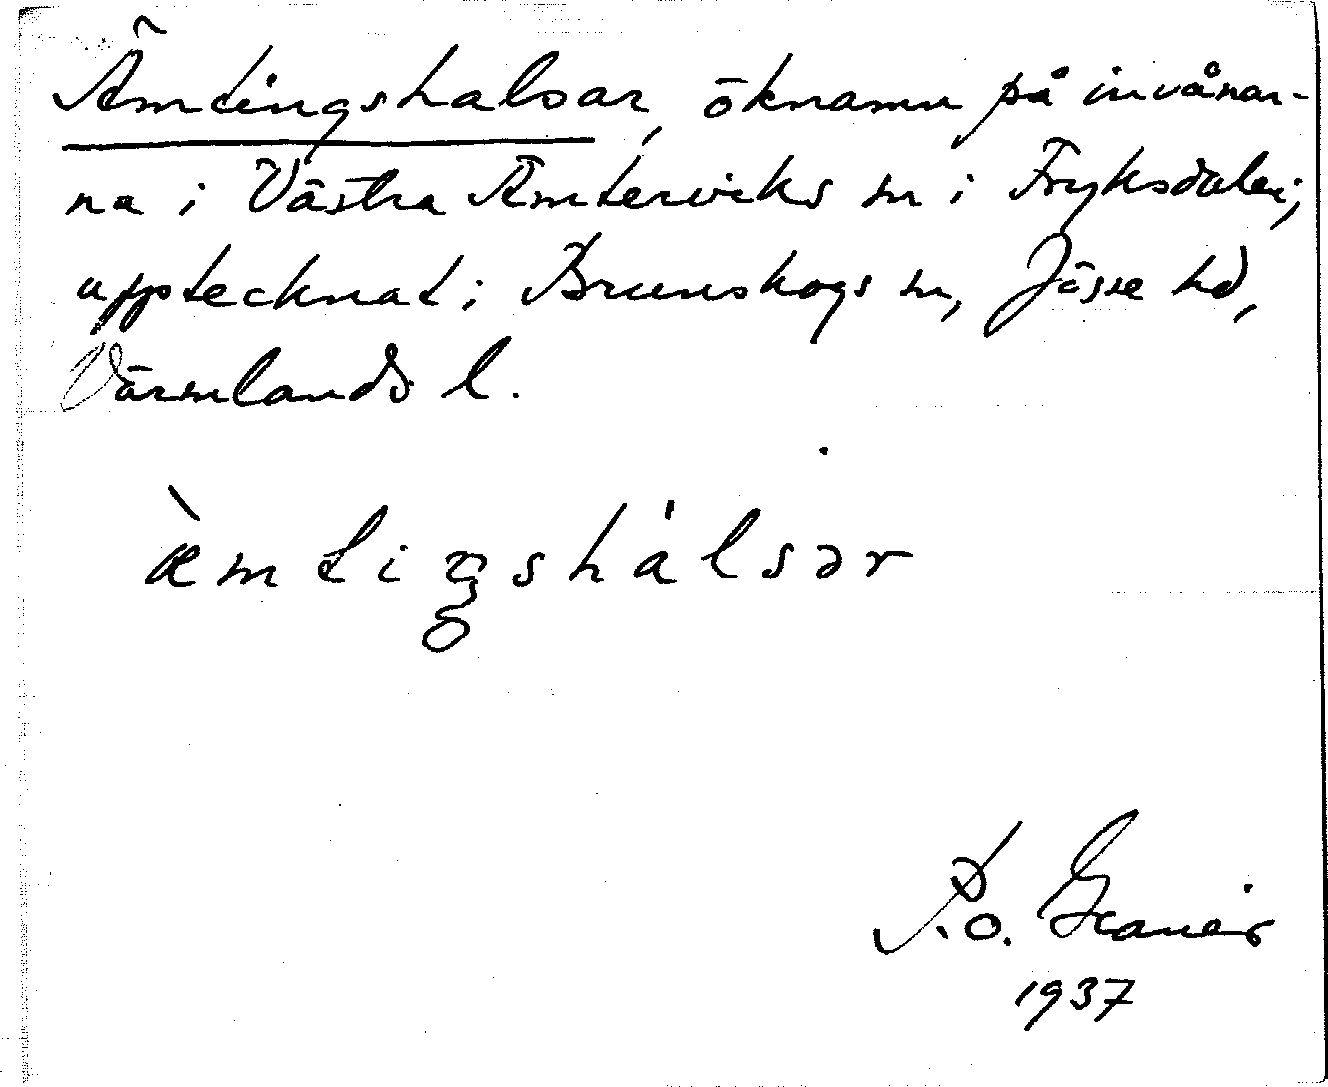 Ämtingshalsar, öknamn på invånar-
na i Västra Ämterviks sn i Fryksdalen;
upptecknat i Brunskogs sn, Jösse hd,
Värmlands l.
æ̀mtiŋshálsər
P.o. Granér
1937